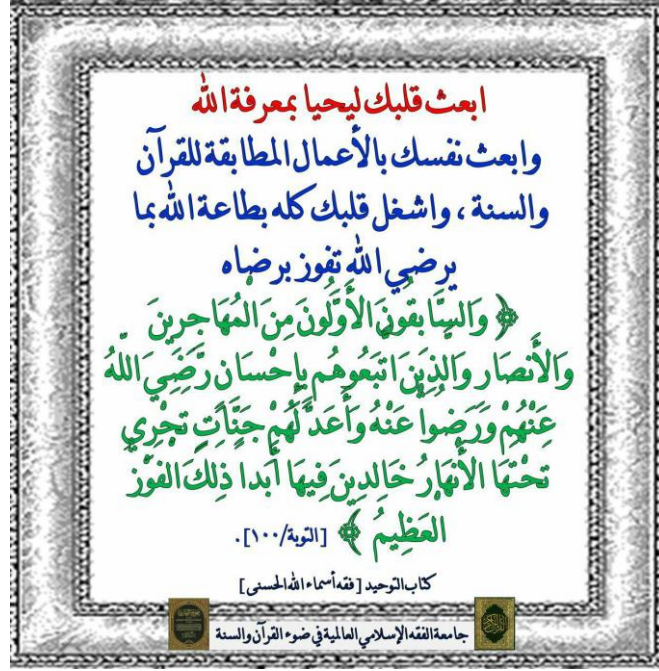 ابعث قلبك ليحيا بمعرفة الله
وابعث نفسك بالأعمال المطابقة للقرآن
والسنة ، واشغل قلبك كله بطاعة الله بما
يرضي الله تفوز برضاه
﴿ وَالسَّابِقُونَ الأَوَّلُونَ مِنَ المُهَاجِرِينَ
وَالأَنصَارِ وَالَّذِينَ اتَّبَعُوهُم بِإِحْسَانٍ رَّضِيَ اللَّهُ
عَنْهُمْ وَرَضُوا عَنْهُ وَأَعَدَّ لَهُمْ جَنَّاتٍ تَجْرِي
تَحْتَهَا الأَنْهَارُ خَالِدِينَ فِيهَا أَبَدا ذَلِكَ الفَوْزُ
العَظِيمُ ﴾ [التوبة/١٠٠] .
كتاب التوحيد [ فقه أسماء الله الحسنى ]
جامعة الفقه الإسلامي العالمية في ضوء القرآن والسنة